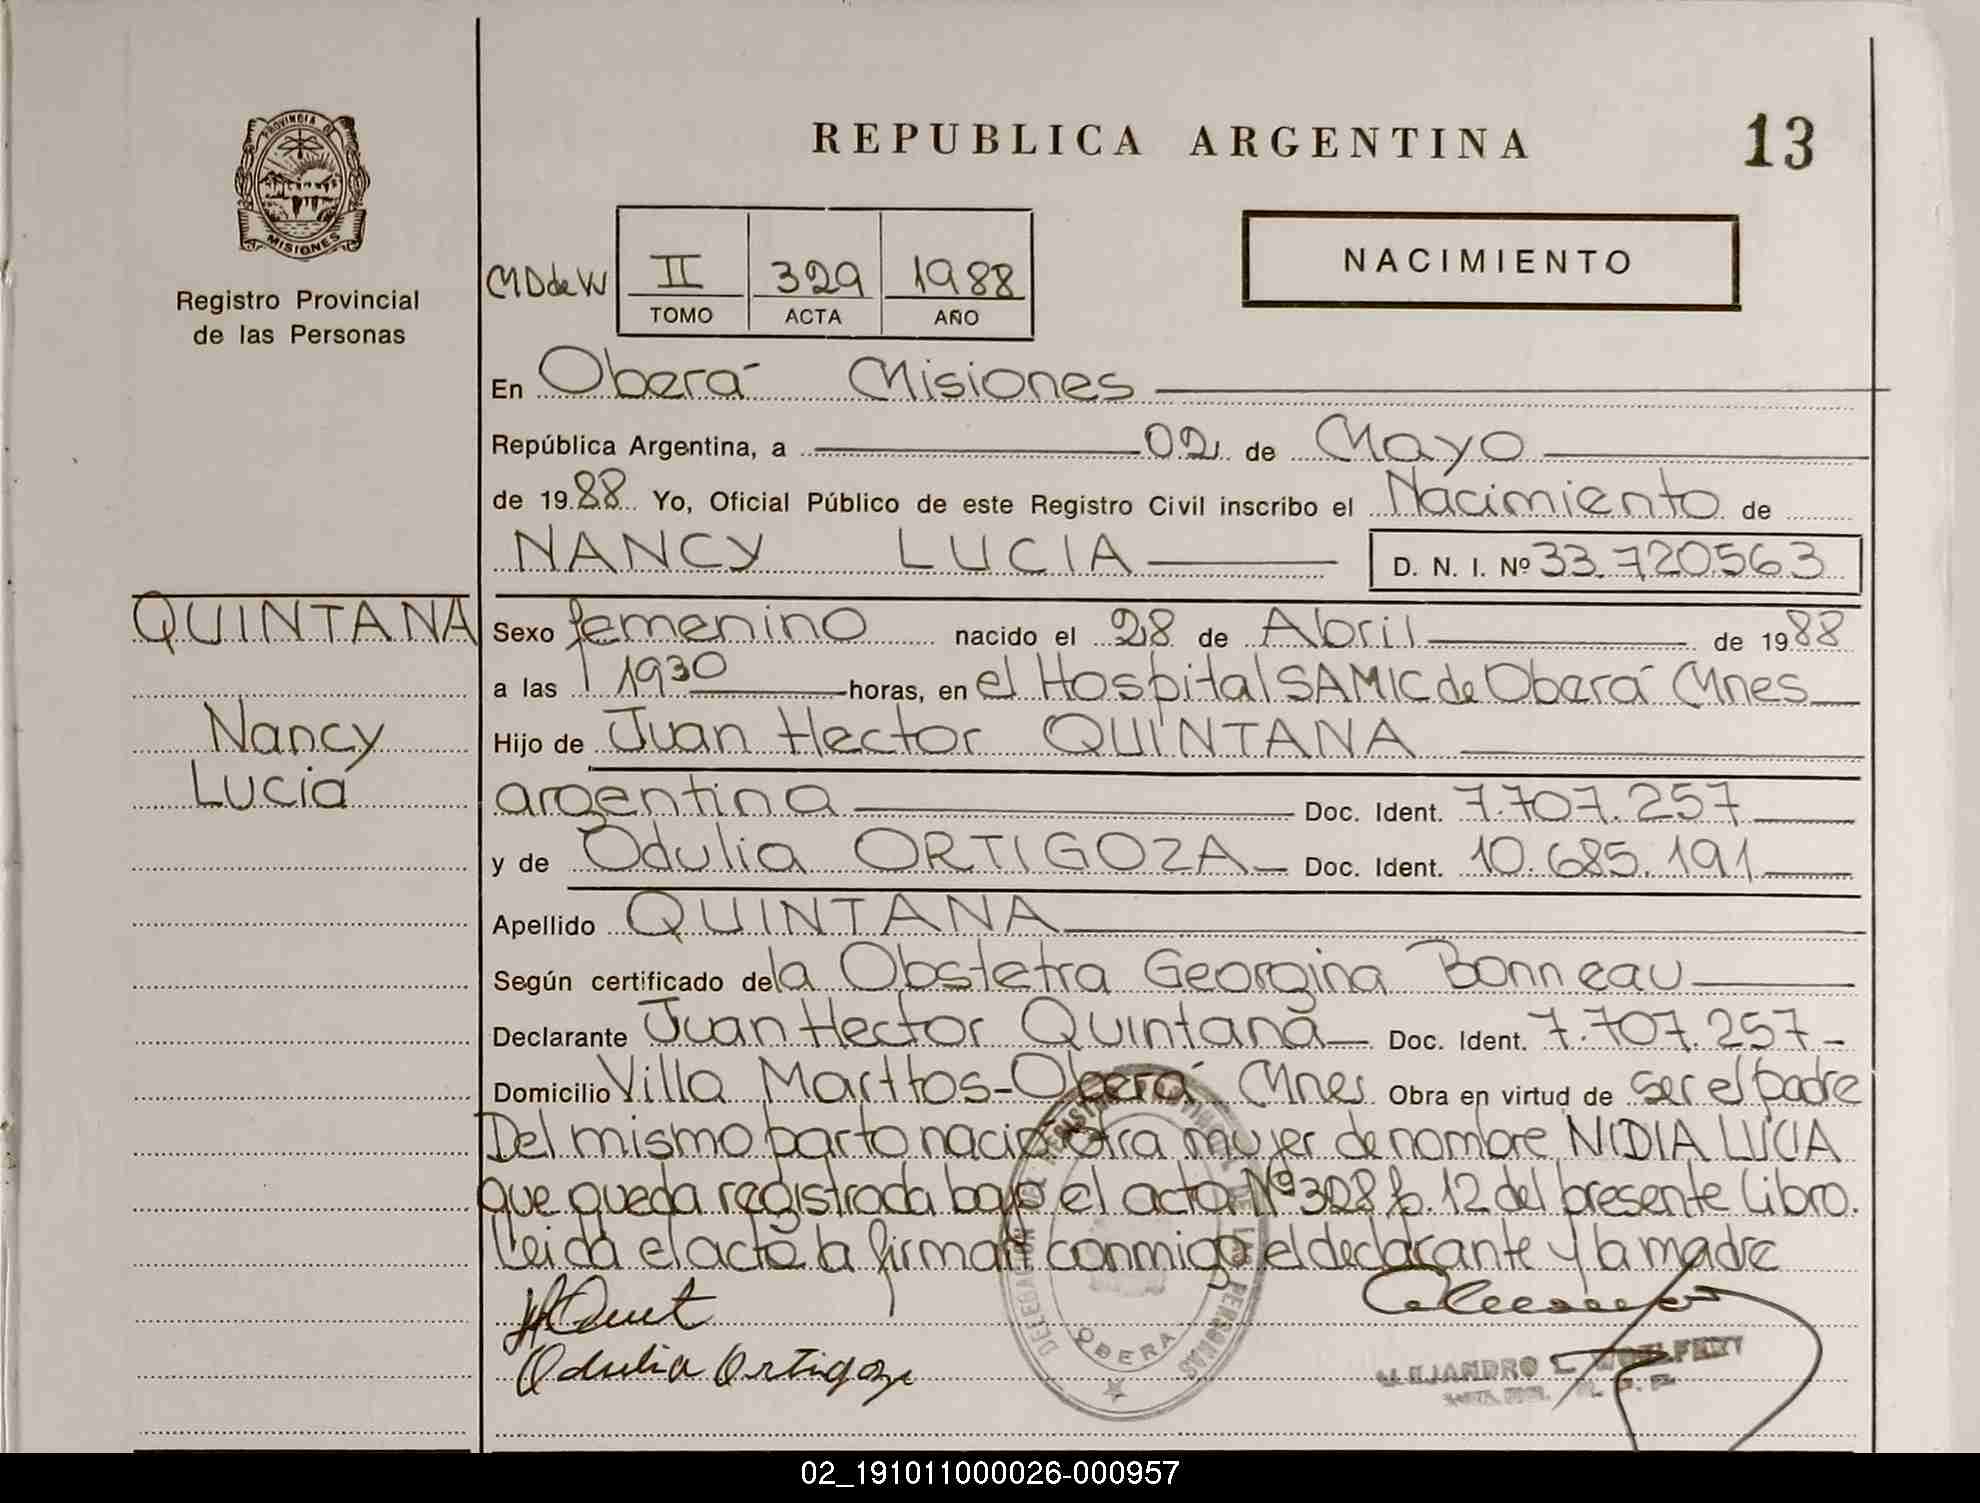 REPUBLICA ARGENTINA
13
PROVINCIA DE
MISIONES
Registro Provincial
de las Personas
MDdeW
II 329 1988
TOMO ACTA AÑO
NACIMIENTO
En Oberá Misiones
República Argentina, a 02 de Mayo
de 1988 Yo, Oficial Público de este Registro Civil inscribo el Nacimiento de
NANCY LUCIA D. N. I. Nº 33.720563
QUINTANA
Nancy
Lucia
Sexo femenino nacido el 28 de Abril de 1988
a las 1930 horas, en el Hospital SAMIC de Oberá Mnes
Hijo de Juan Hector QUINTANA
argentina Doc. Ident. 7.707.257
y de Odulia ORTIGOZA Doc. Ident. 10.685.191
Apellido QUINTANA
Según certificado de la Obstetra Georgina Bonneau
Declarante Juan Hector Quintana Doc. Ident. 7.707.257
Domicilio Villa Marttos-Oberá Mnes Obra en virtud de ser el padre
Del mismo parto nació otra mujer de nombre NIDIA LUCIA
que queda registrada bajo el acta Nº 328 f. 12 del presente Libro.
Leida el acta la firman conmigo el declarante y la madre
Odulia Ortigoza
DELEGACION DEL REGISTRO PROVINCIAL DE LAS PERSONAS
OBERA
ALEJANDRO
02_191011000026-000957